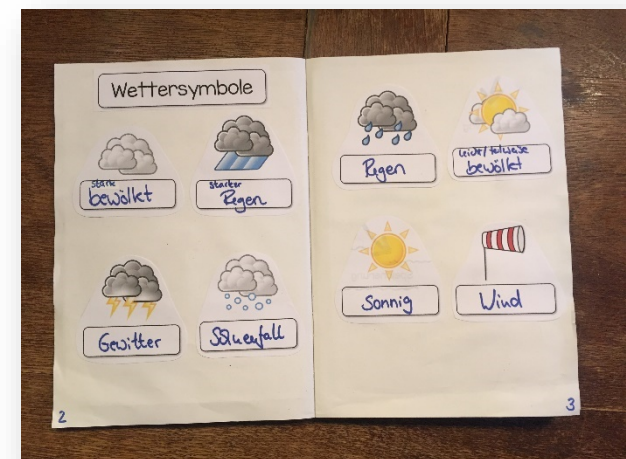 Wettersymbole
stark
bewölkt
starker
Regen
Gewitter
Schneefall
2
Regen
leicht/teilweise
bewölkt
Sonnig
Wind
3